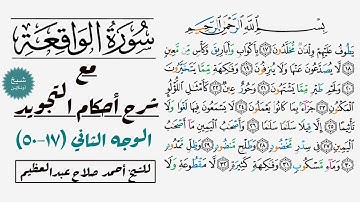 بِسْمِ ٱللَّهِ ٱلرَّحْمَٰنِ ٱلرَّحِيمِ
يَطُوفُ عَلَيْهِمْ وِلْدَٰنٌ مُّخَلَّدُونَ ١٧ بِأَكْوَابٍ وَأَبَارِيقَ وَكَأْسٍ مِّن مَّعِينٍ
١٨ لَّا يُصَدَّعُونَ عَنْهَا وَلَا يُنزِفُونَ ١٩ وَفَٰكِهَةٍ مِّمَّا يَتَخَيَّرُونَ
٢٠ وَلَحْمِ طَيْرٍ مِّمَّا يَشْتَهُونَ ٢١ وَحُورٌ عِينٌ ٢٢ كَأَمْثَٰلِ ٱللُّؤْلُؤِ
ٱلْمَكْنُونِ ٢٣ جَزَآءًۢ بِمَا كَانُوا۟ يَعْمَلُونَ ٢٤ لَا يَسْمَعُونَ فِيهَا لَغْوًا وَلَا
تَأْثِيمًا ٢٥ إِلَّا قِيلًا سَلَٰمًا سَلَٰمًا ٢٦ وَأَصْحَٰبُ ٱلْيَمِينِ مَآ أَصْحَٰبُ ٱلْيَمِينِ
٢٧ فِى سِدْرٍ مَّخْضُودٍ ٢٨ وَطَلْحٍ مَّنضُودٍ ٢٩ وَظِلٍّ مَّمْدُودٍ
٣٠ وَمَآءٍ مَّسْكُوبٍ ٣١ وَفَٰكِهَةٍ كَثِيرَةٍ ٣٢ لَّا مَقْطُوعَةٍ وَلَا
سُورَةُ الوَاقِعَة
مع
شرح أحكام التجويد
الوجه الثاني (١٧-٥٠)
للشيخ أحمد صلاح عبدالعظيم
شيخ
اونلاين